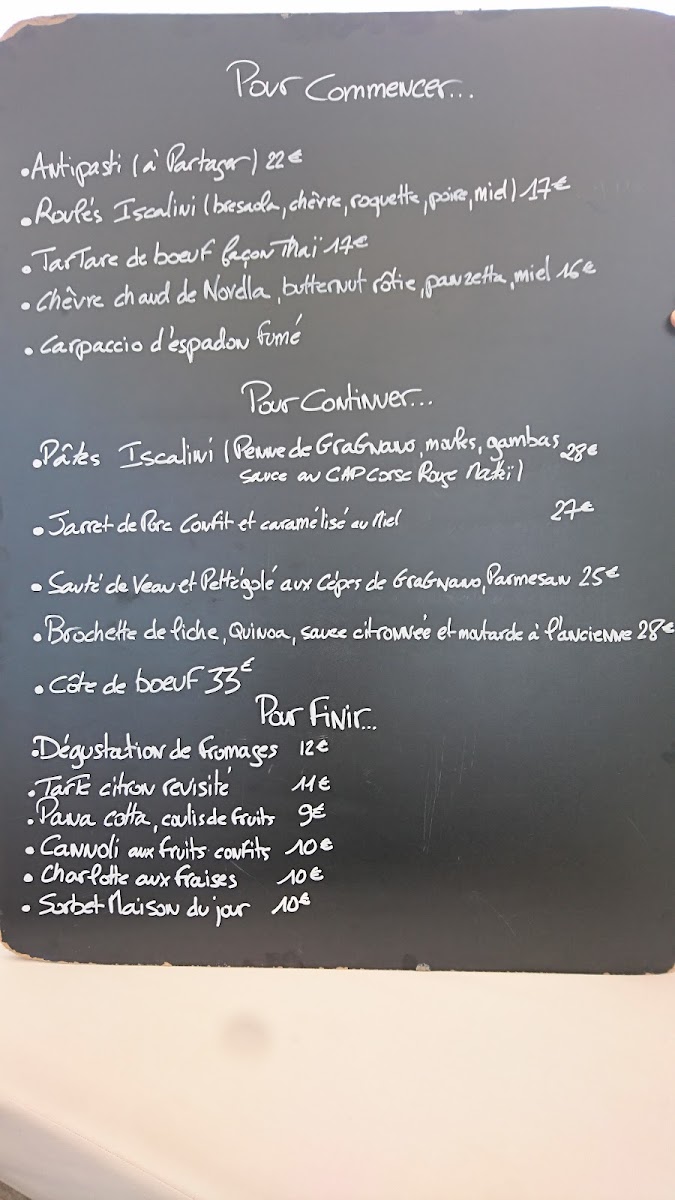 Pour Commencer...
• Antipasti (à Partager) 22€
• Roulés Iscalini (bresaola, chèvre, roquette, poire, miel) 17€
• Tartare de boeuf façon Thaï 17€
• Chèvre chaud de Novella, butternut rôtie, panzetta, miel 16€
• Carpaccio d'espadon fumé
Pour Continuer...
• Pâtes Iscalini (Penne de Gragnano, moules, gambas 28€
sauce au CAP Corse Rouge Mattei)
• Jarret de Porc Confit et caramélisé au Miel 27€
• Sauté de Veau et Pettégolé aux Cèpes de Gragnano, Parmesan 25€
• Brochette de liche, Quinoa, sauce citronnée et moutarde à l'ancienne 28€
• Côte de boeuf 33€
Pour Finir...
• Dégustation de fromages 12€
• Tarte citron revisité 11€
• Pana cotta, coulis de fruits 9€
• Cannoli aux fruits confits 10€
• Charlotte aux fraises 10€
• Sorbet Maison du jour 10€